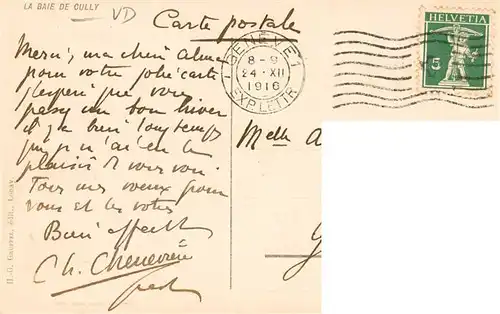 LA BAIE DE CULLY
VD
Carte postale
Merci, ma chère Alma
pour votre jolie carte
J'espère que vous
passez un bon hiver
il y a bien longtemps
que je n'ai eu le
plaisir de vous voir.
Tous mes voeux pour
vous et les vôtres
Bien affect
Ch. Chenevière
GENÈVE 1
8-9
24·XII
1916
EXP. LETTR.
HELVETIA
5
Melle A
G